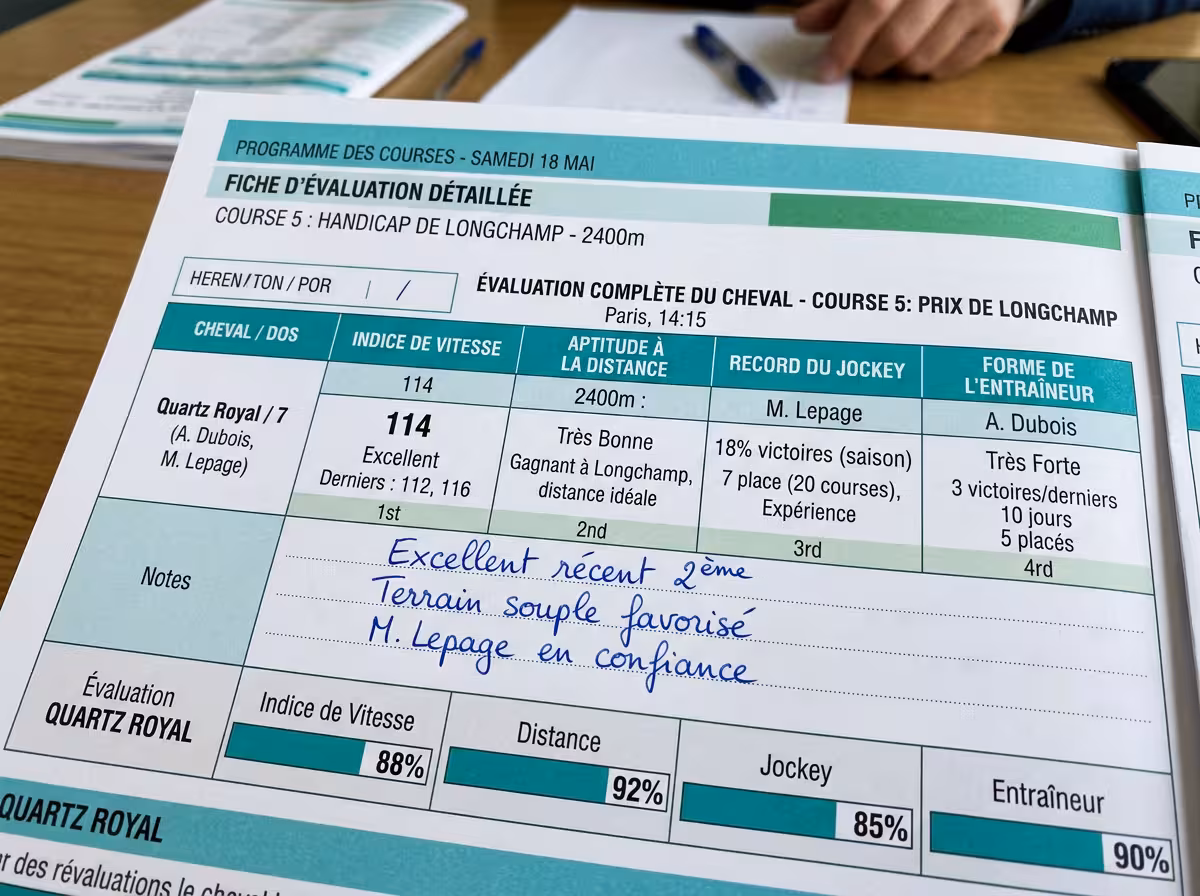 PROGRAMME DES COURSES - SAMEDI 18 MAI
FICHE D'ÉVALUATION DÉTAILLÉE
COURSE 5 : HANDICAP DE LONGCHAMP - 2400m
HEREN/TON / POR | /
ÉVALUATION COMPLÈTE DU CHEVAL - COURSE 5: PRIX DE LONGCHAMP
Paris, 14:15
CHEVAL / DOS
INDICE DE VITESSE
APTITUDE À
LA DISTANCE
RECORD DU JOCKEY
FORME DE
L'ENTRAÎNEUR
114
2400m :
M. Lepage
A. Dubois
Quartz Royal / 7
(A. Dubois,
M. Lepage)
114
Excellent
Derniers : 112, 116
Très Bonne
Gagnant à Longchamp,
distance idéale
18% victoires (saison)
7 place (20 courses),
Expérience
Très Forte
3 victoires/derniers
10 jours
5 placés
1st
2nd
3rd
4rd
Notes
Excellent récent 2ème
Terrain souple favorisé
M. Lepage en confiance
Évaluation
QUARTZ ROYAL
Indice de Vitesse
88%
Distance
92%
Jockey
85%
Entraîneur
90%
QUARTZ ROYAL
des révaluations le